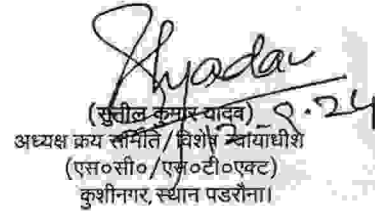 Syadav
(सुशील कुमार यादव)
13-9-24
अध्यक्ष क्रय समिति/विशेष न्यायाधीश
(एस०सी०/एस०टी०एक्ट)
कुशीनगर, स्थान पडरौना।